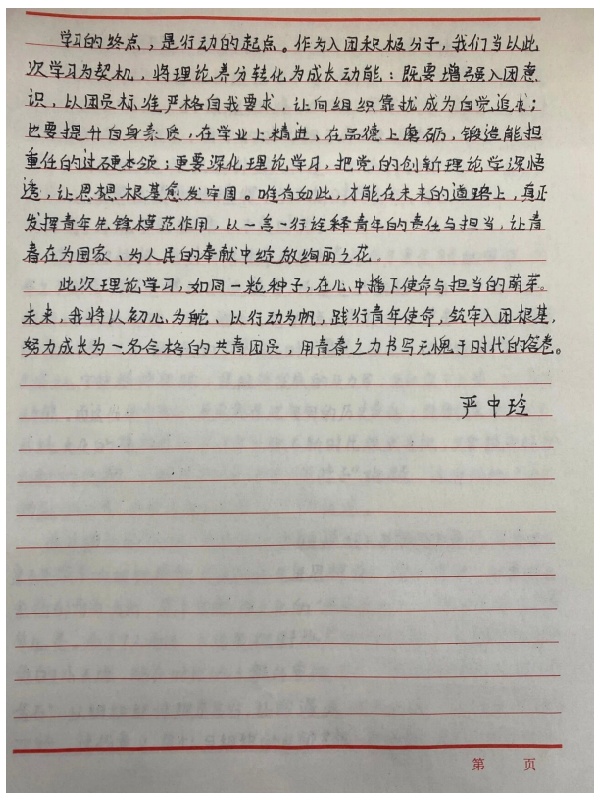 学习的终点，是行动的起点。作为入团积极分子，我们当以此
次学习为契机，将理论养分转化为成长动能：既要增强入团意
识，以团员标准严格自我要求，让向组织靠拢成为自觉追求；
也要提升自身素质，在学业上精进、在品德上磨砺，锻造能担
重任的过硬本领；更要深化理论学习，把党的创新理论学深悟
透，让思想根基愈发牢固。唯有如此，才能在未来的道路上，真正
发挥青年先锋模范作用，以一言一行诠释青年的责任与担当，让青
春在为国家、为人民的奉献中绽放绚丽之花。
此次理论学习，如同一粒种子，在心中播下使命与担当的萌芽。
未来，我将以初心为舵、以行动为帆，践行青年使命，筑牢入团根基，
努力成长为一名合格的共青团员，用青春之力书写无愧于时代的答卷。
严中玲
第 页